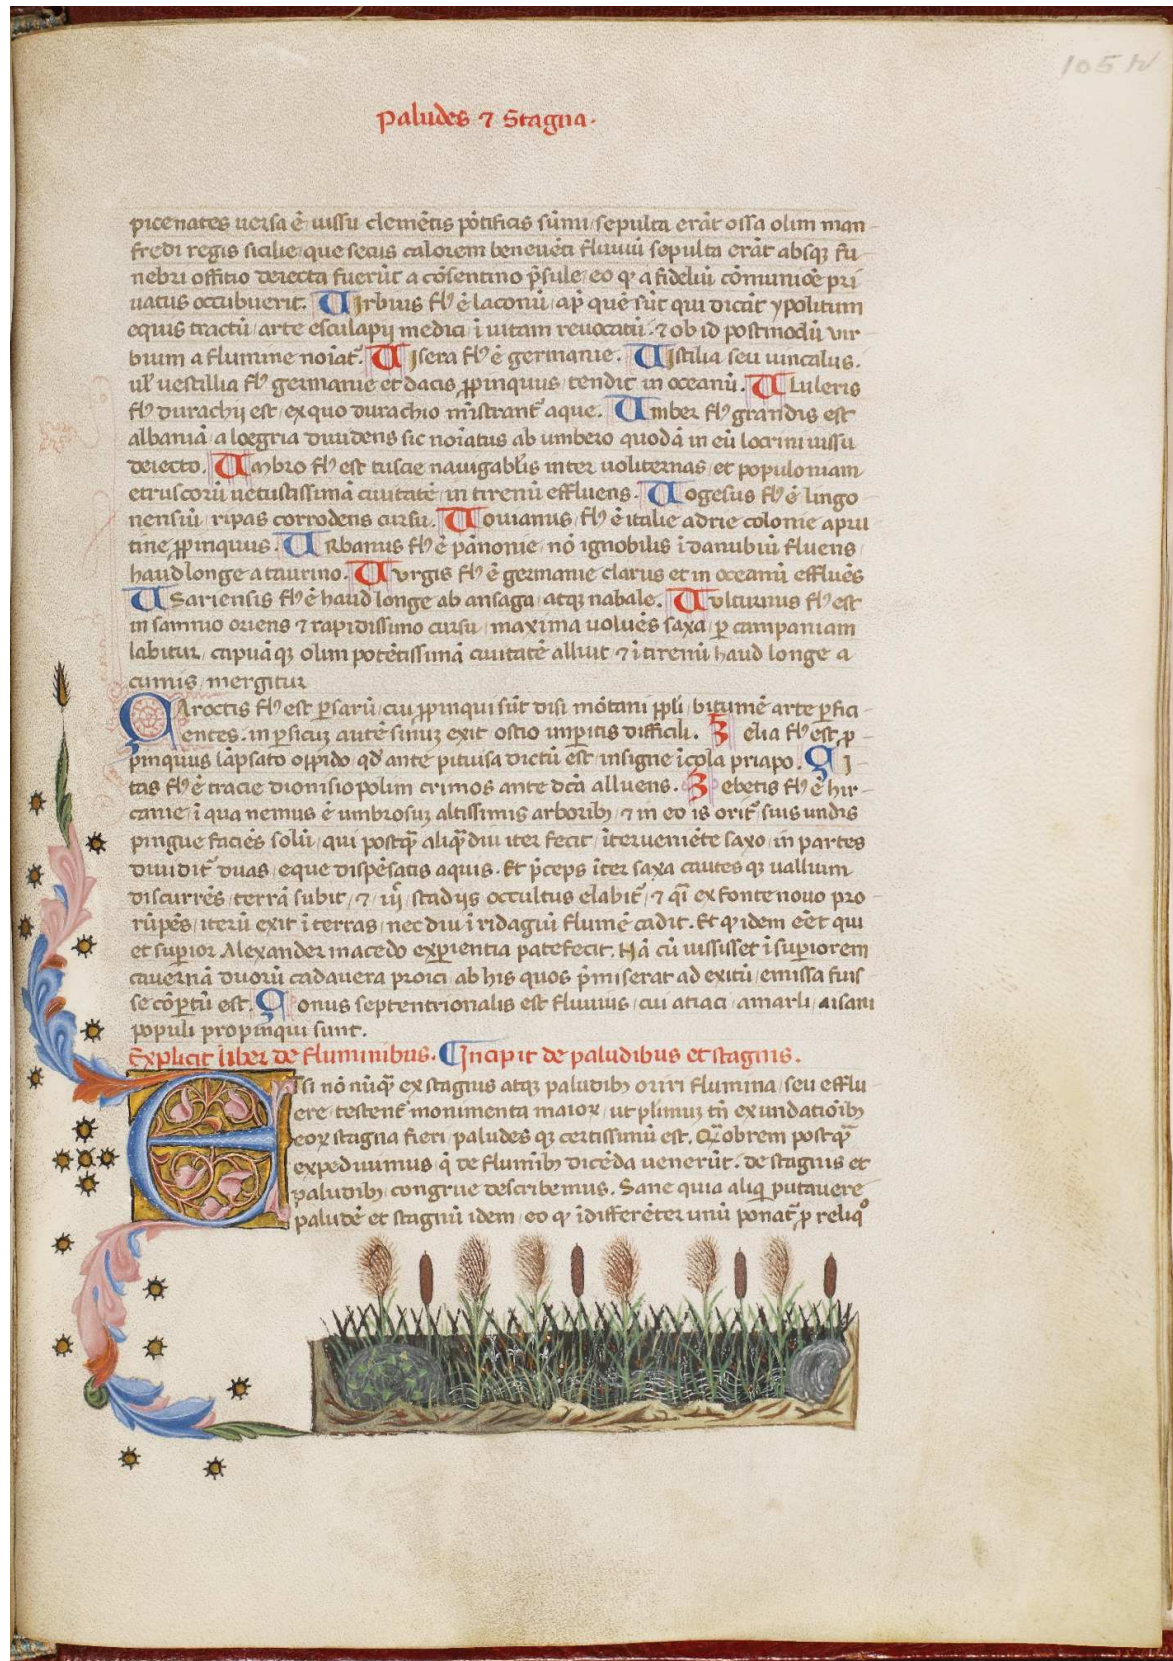 105 r
Paludes ⁊ Stagna.
picenates uersa ē, iussu clemētis pōtificis sūmi, sepulta erāt ossa olim man
fredi regis sicilie, que secus calorem beneuēti fluuiū sepulta erāt absqꝫ fu
nebri offitio deiecta fuerūt a cōsentino p̄sule, eo ꝙ a fideliū cōmunioē pri
uatus occubuerit. Uirbius fl̄ ē laconū, ap̄ quē sūt qui dicāt ypolitum
equis tractū, arte esculapij medici, ī uitam reuocatū. ⁊ ob id postmodū uir
bium a flumine noīat̄. Uisera fl̄ ē germanie. Uistilia seu uinculus.
ul̄ uestillia fl̄ germanie et dacis ꝓpinquus, tendit in oceanū. Ululeris
fl̄ durachij est, ex quo durachio mīstrant̄ aque. Umber fl̄ grandis est
albaniā, a loegria diuidens sic noīatus ab umbero quodā in eū locrini iussu
deiecto. Umbro fl̄ est tuscie nauigabl̄is inter uoliternas, et populoniam
etruscorū uetustissimā ciuitatē, in tirenū effluens. Uogesus fl̄ ē lingo
nensiū, ripas corrodens cursu. Uouianus, fl̄ ē italie adrie colonie apru
tine ꝓpinquus. Urbanus fl̄ ē pānonie, nō ignobilis ī danubiū fluens,
haud longe a taurino. Uurgis fl̄ ē germanie clarus et in oceanū effluēs
Usariensis fl̄ ē haud longe ab ansaga, atqꝫ nabale. Uulturnus fl̄ est
in samnio oriens ⁊ rapidissimo cursu, maxima uoluēs saxa, ꝑ campaniam
labitur, capuāqꝫ olim potētissimā ciuitatē alluit, ⁊ ī tirenū haud longe a
cumis, mergitur
Çaroctis fl̄ est ꝑsarū, cui ꝓpinqui sūt disi mōtani ꝓpli, bitumē arte ꝑfici
entes. in ꝑsicuꝫ autē sinuꝫ exit ostio imꝑitis difficili. Zelia fl̄ est, ꝓ
pinquus lāpsato oppido qd̄ ante pitiusa dictū est, insigne īcola priapo. Çi
tas fl̄ ē tracie dionisiopolim crimos ante dcā alluens. Zebetis fl̄ ē hir
canie, ī qua nemus ē umbrosuꝫ altissimis arboribꝫ, ⁊ in eo is orit̄, suis undis
pingue faciēs solū, qui postq̄ aliq̄diu iter fecit, īterueniēte saxo, in partes
diuidit̄ duas, eque dispēsatis aquis. Et p̄ceps īter saxa cautes qꝫ uallium
discurrēs, terrā subit, ⁊, iijͨ, stadijs occultus elabit̄, ⁊ q̄i ex fonte nouo pro
rūpēs, iterū exit ī terras, nec diu ī ridagiū flumē cadit. Et ꝙ idem eēt qui
et suꝑior Alexander macedo exꝑientia patefecit. Nā cū iussisset ī suꝑiorem
cauernā duorū cadauera proici, ab his quos p̄miserat ad exitū, emissa fuis
se cōꝑtū est. Çonus septentrionalis est fluuius, cui atiaci, amarli, aisani
populi propinqui sunt.
Explicit liber de fluminibus. Incipit de paludibus et stagnis.
Etsi nō nūq̄ ex stagnis atqꝫ paludibꝫ oriri flumina, seu efflu
ere, testent̄ monimenta maioꝝ, ut plimuꝫ tn̄ ex undatiōibꝫ
eoꝝ stagna fieri, paludes qꝫ certissimū est. Q̄obrem postq̄
expediuimus, q̄ de flumībꝫ dicēda uenerūt. de stagnis et
paludibꝫ, congrue describemus. Sane quia aliq̄ putauere
paludē et stagnū idem, eo ꝙ īdifferēter unū ponat̄, ꝑ reliqͦ